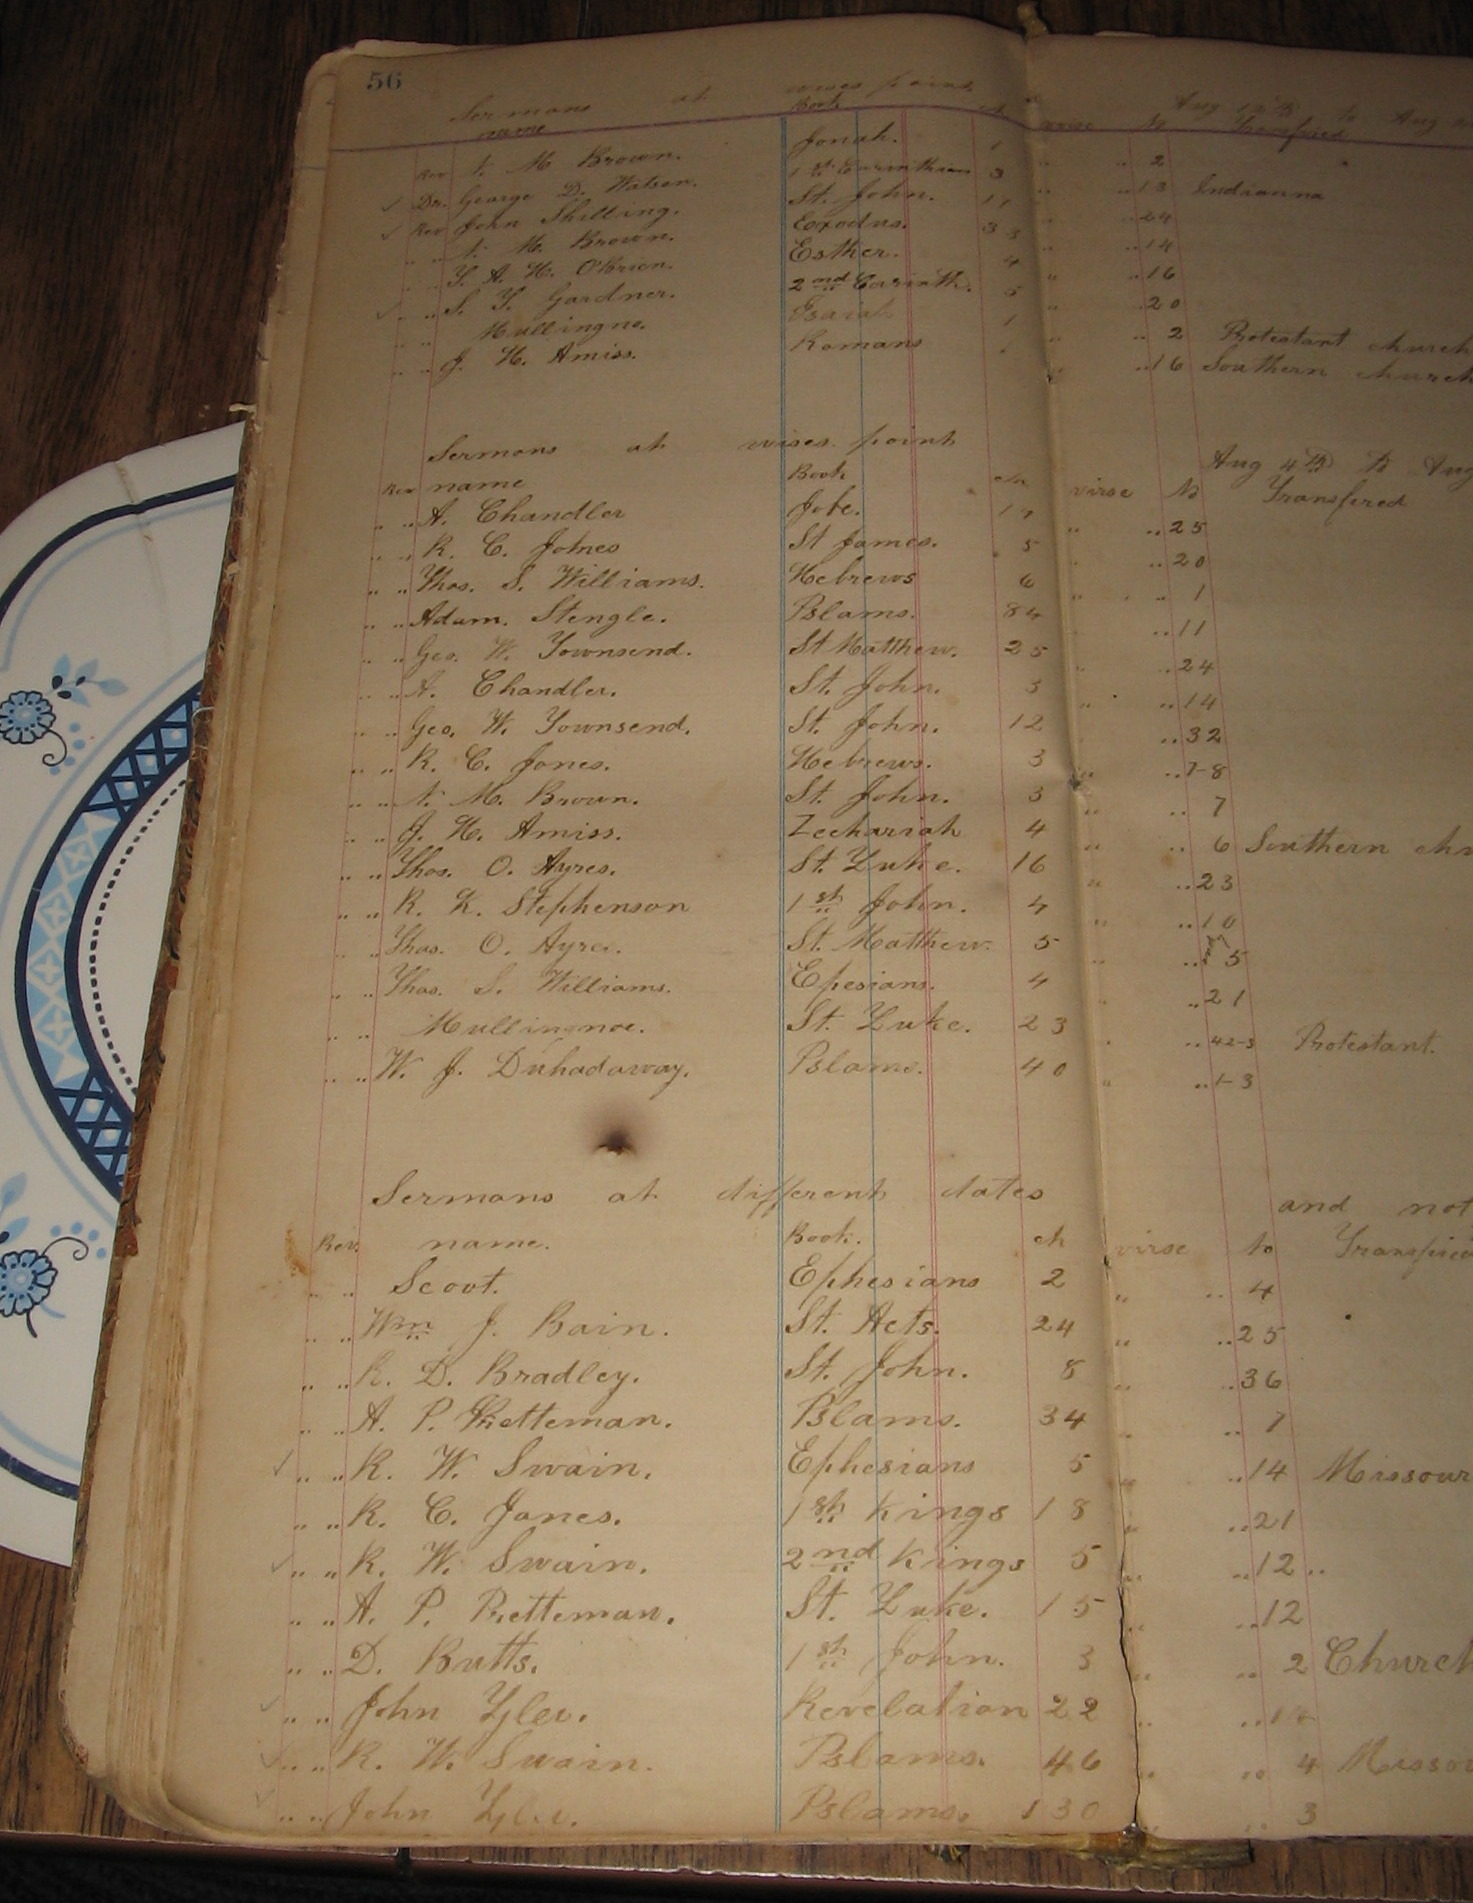 56
Sermons at wises point Aug 12th to Aug
name Book ch virse No Transfired
Rev N. M Brown. Jonah. 1 " " 2
Dr. George D. Watson. 1st Corinthian 3 " " 13 Indianna
Rev John Shilling. St. John. 11 " " 24
" " N. M. Brown. Exodus. 33 " " 14
" " A. H. O'Brien. Esther. 4 " " 16
" " S. T. Gardner. 2nd Corinth. 5 " " 20
" " Mullingno. Esaiah 1 " " 2 Protestant church
" " J. H. Amiss. Romans " " 16 Southern church
Sermons at wises point Aug 4th to Aug
Rev name Book ch virse No Transfired
" " A. Chandler Jobe. 14 " " 25
" " R. C. Jolnes St James. 5 " " 20
" " Thos. S. Williams. Hebrews 6 " " 1
" " Adam. Stengle. Pslams. 84 " " 11
" " Geo. W. Townsend. St Matthew. 25 " " 24
" " A. Chandler. St. John. 3 " " 14
" " Geo. W. Townsend. St. John. 12 " " 32
" " R. C. Jones. Hebrews. 3 " " 7-8
" " N. M. Brown. St. John. 3 " " 7
" " J. H. Amiss. Zechariah 4 " " 6 Southern
" " Thos. O. Ayres. St. Luke. 16 " " 23
" " R. K. Stephenson 1st John. 4 " " 10
" " Thos. O. Ayres. St. Matthew. 5 " " 5
" " Thos. S. Williams. Epesians. 4 " " 21
" " Mullingnoe. St. Luke. 23 " " 42-3 Protestant.
" " W. J. Duhadaway. Pslams. 40 " " 1-3
Sermons at different dates and not
Rev. name. Book. ch virse No Transfired
" " Scoot. Ephesians 2 " " 4
" " Wm J. Bain. St. Acts. 24 " " 25
" " R. D. Bradley. St. John. 8 " " 36
" " A. P. Pretteman. Pslams. 34 " " 7
✓ " " R. W. Swain. Ephesians 5 " " 14 Missour
" " R. C. Jones. 1st Kings 18 " " 21
✓ " " R. W. Swain. 2nd Kings 5 " " 12 "
" " A. P. Pretteman. St. Luke. 15 " " 12
" " D. Butts. 1st John. 3 " " 2 Church
✓ " " John Tyler. Revelation 22 " "
✓ " " R. W. Swain. Pslams. 46 " " 4 Missou
✓ " " John Tyler. Pslams. 130 " " 3